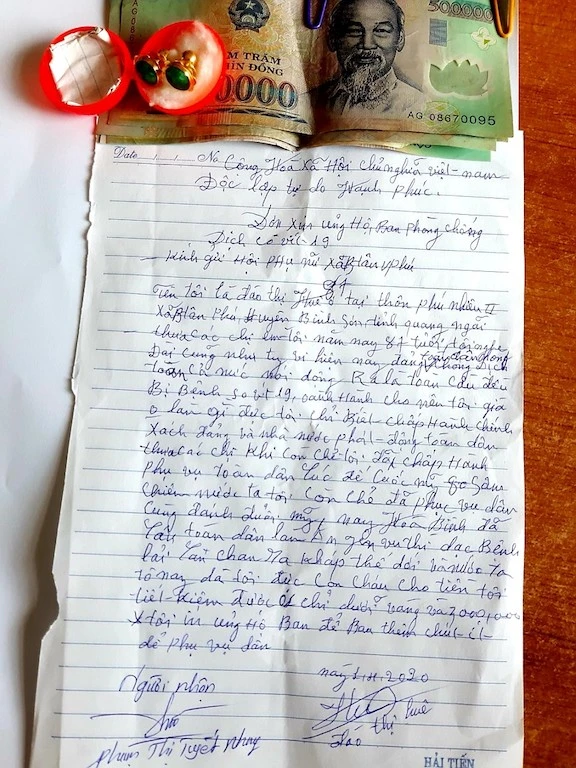 500000
AG 08
M TRĂM
HÌN ĐỒNG
0000
AG 08670095
Date No Công Hoá Xã Hội Chủ nghĩa việt-nam
Độc lập tự do Hạnh phúc.
Đơn xin ủng Hộ Ban phòng chống
Dịch cô vit-19
- Kính gửi Hội phụ nữ xã Bình Tân phú
Tên tôi là đào thị Huê ở tại thôn phú nhiêu II
phú Huyện Bình Sơn tỉnh quang ngãi
- thưa các chị tôi năm nay 87 tuổi tôi nghe
Đài cũng như ty vi hiên nay đảng
cả nước nói đồng Ra là toàn cầu đều
Bị Bệnh 19, oành Hành cho nên tôi già
o làm gì đức tôi chỉ Biêt chấp Hành chính
xách đảng và nhà nước phát-động toàn dân
thưa các chị Khi còn chẻ tôi đã chấp Hành
phụ vụ toàn dân lúc đế cuốc mỹ
chiếm nước ta tôi còn chẻ đã phục vụ dân
cũng đánh đuổi mỹ nay Hoà Bình đã
toàn dân làm Ăn gên vui thì đạc Bệnh
lại lan chan Ra khắp thế dới và nước ta
tô nay đã dời đức con cháu cho tiền tôi
tiêt-kiệm được chỉ dưỡi vang và 3.000,000
tôi in ung Hộ Ban để Ban thêm chút-ít
để phụ vụ dân
Người nhận
2020
Phạm Thị Tuyết Nhung
Đào thị Huê
HẢI TIẾN